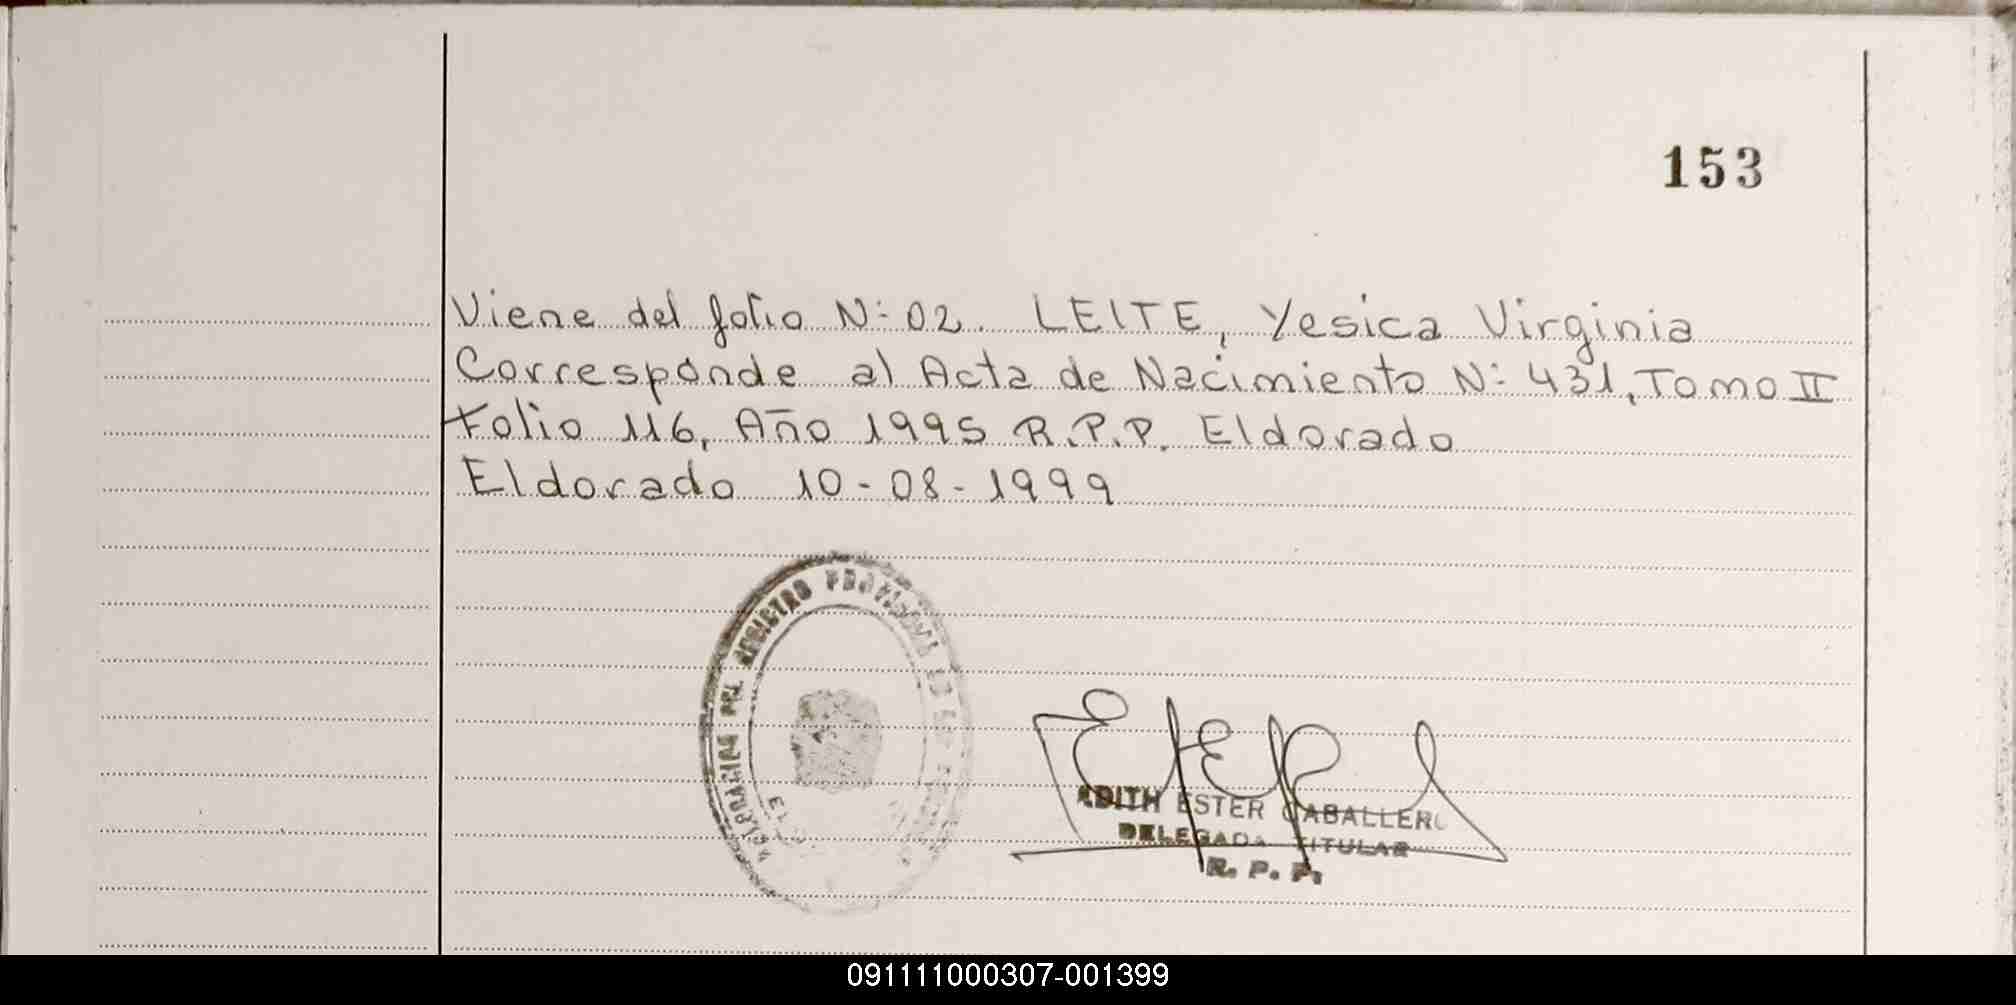 153
Viene del folio N: 02. LEITE, Yesica Virginia
Corresponde al Acta de Nacimiento N: 431, Tomo II
Folio 116, Año 1995 R.P.P. Eldorado
Eldorado 10-08-1999
DEL REGISTRO PROVINCIAL DE LAS
ADITH ESTER CABALLERO
DELEGADA TITULAR
R. P. P.
091111000307-001399